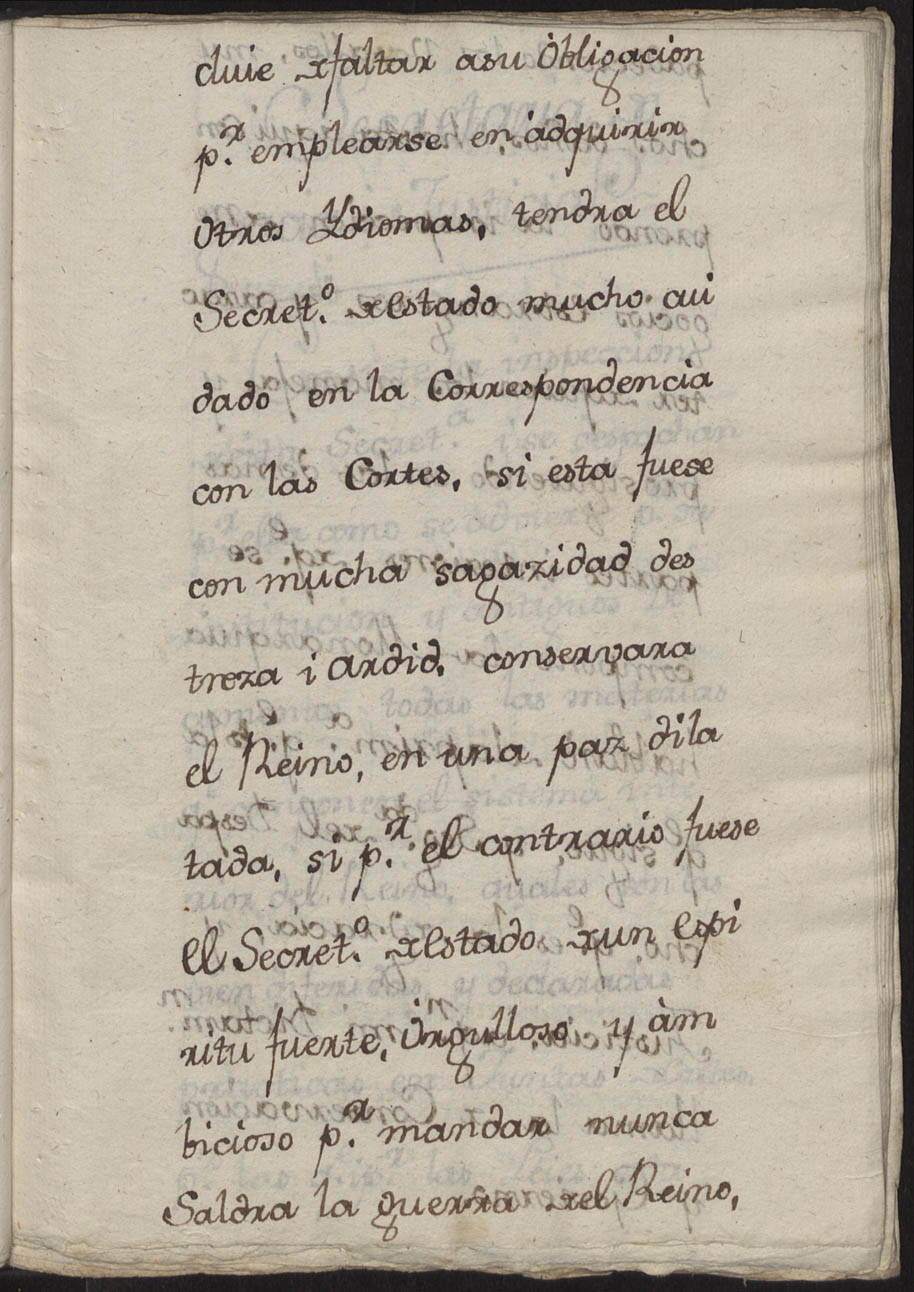 cluie xfaltar asu Obligacion
p.r emplearse en adquirir
otros Ydiomas, tendra el
Secret.o xEstado mucho cui
dado en la Correspondencia
con las Cortes, si esta fuese
con mucha sagazidad des
treza i ardid, conservara
el Reino, en una paz dila
tada, si p.r el contrario fuese
el Secret.o xEstado xun espi
ritu fuerte, Orgulloso y àm
bicioso p.r mandar nunca
Saldra la guerra xel Reino,